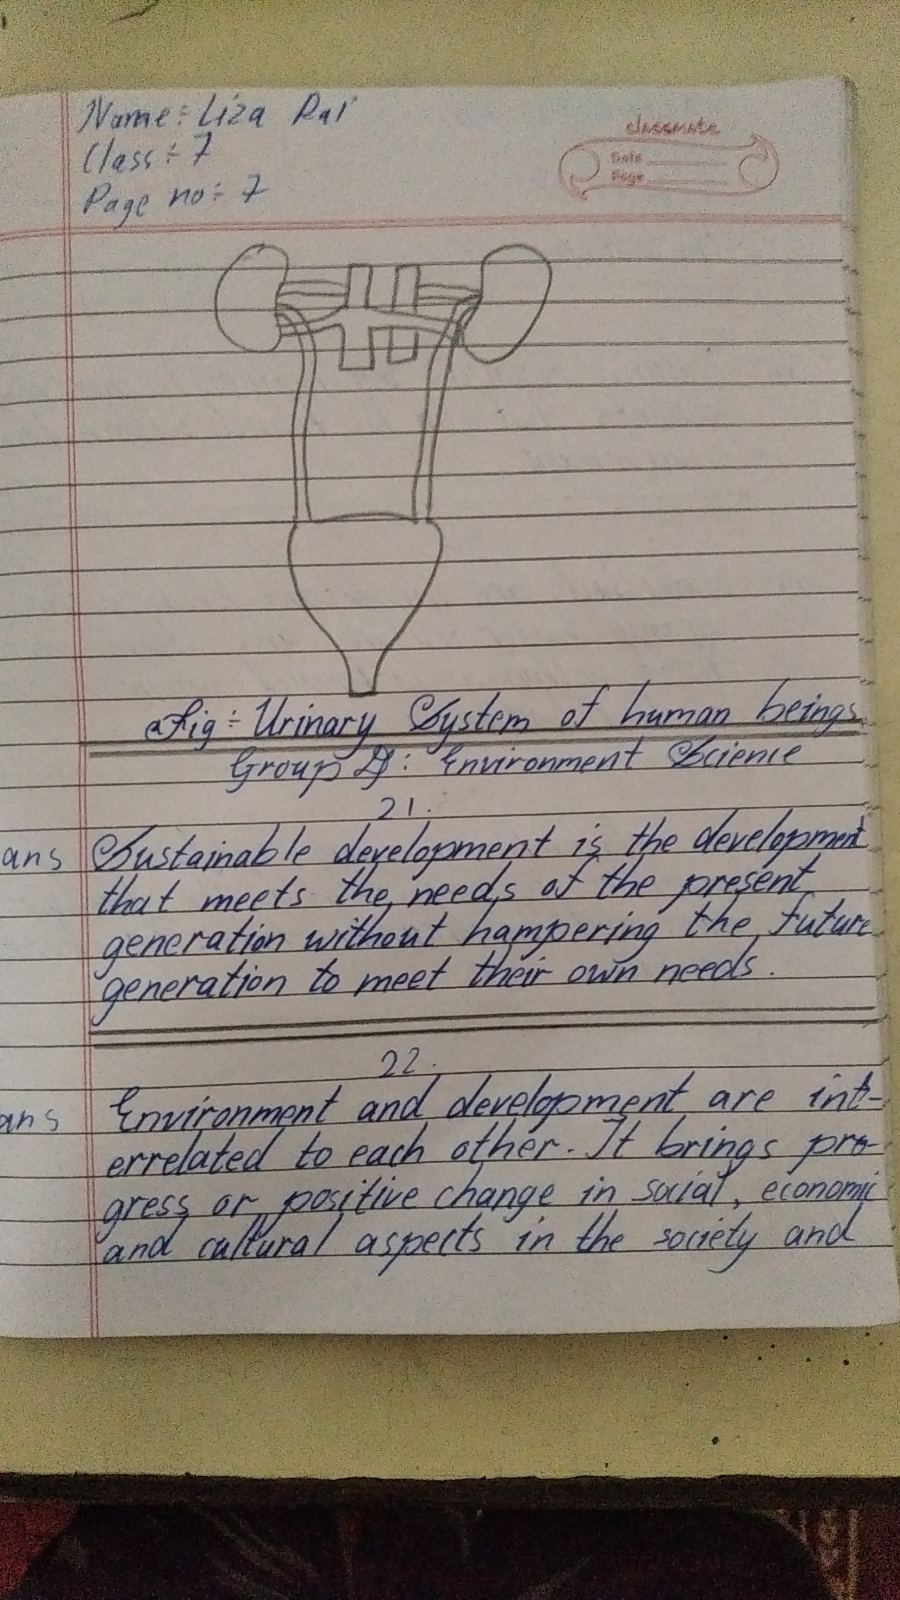 Name÷ Liza Rai
Class÷ 7
Page no÷ 7
classmate
Date
Page
Fig÷ Urinary System of human beings
Group D: Environment Science
21.
ans Sustainable development is the development
that meets the needs of the present
generation without hampering the future
generation to meet their own needs.
22.
ans Environment and development are int-
errelated to each other. It brings pro-
gress or positive change in social, economic
and cultural aspects in the society and